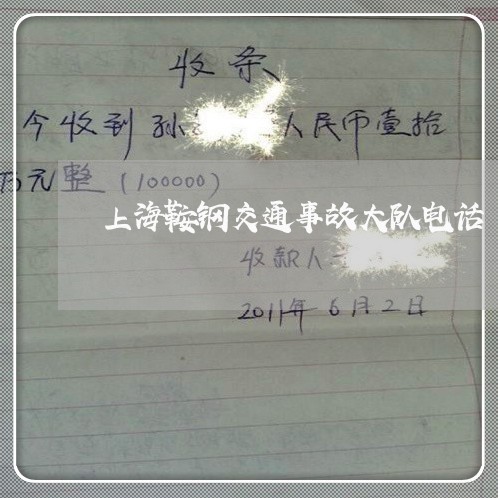 收条
今收到孙 人民币壹拾
万元整(100000)
上海鞍钢交通事故大队电话
收款人
2011年6月2日